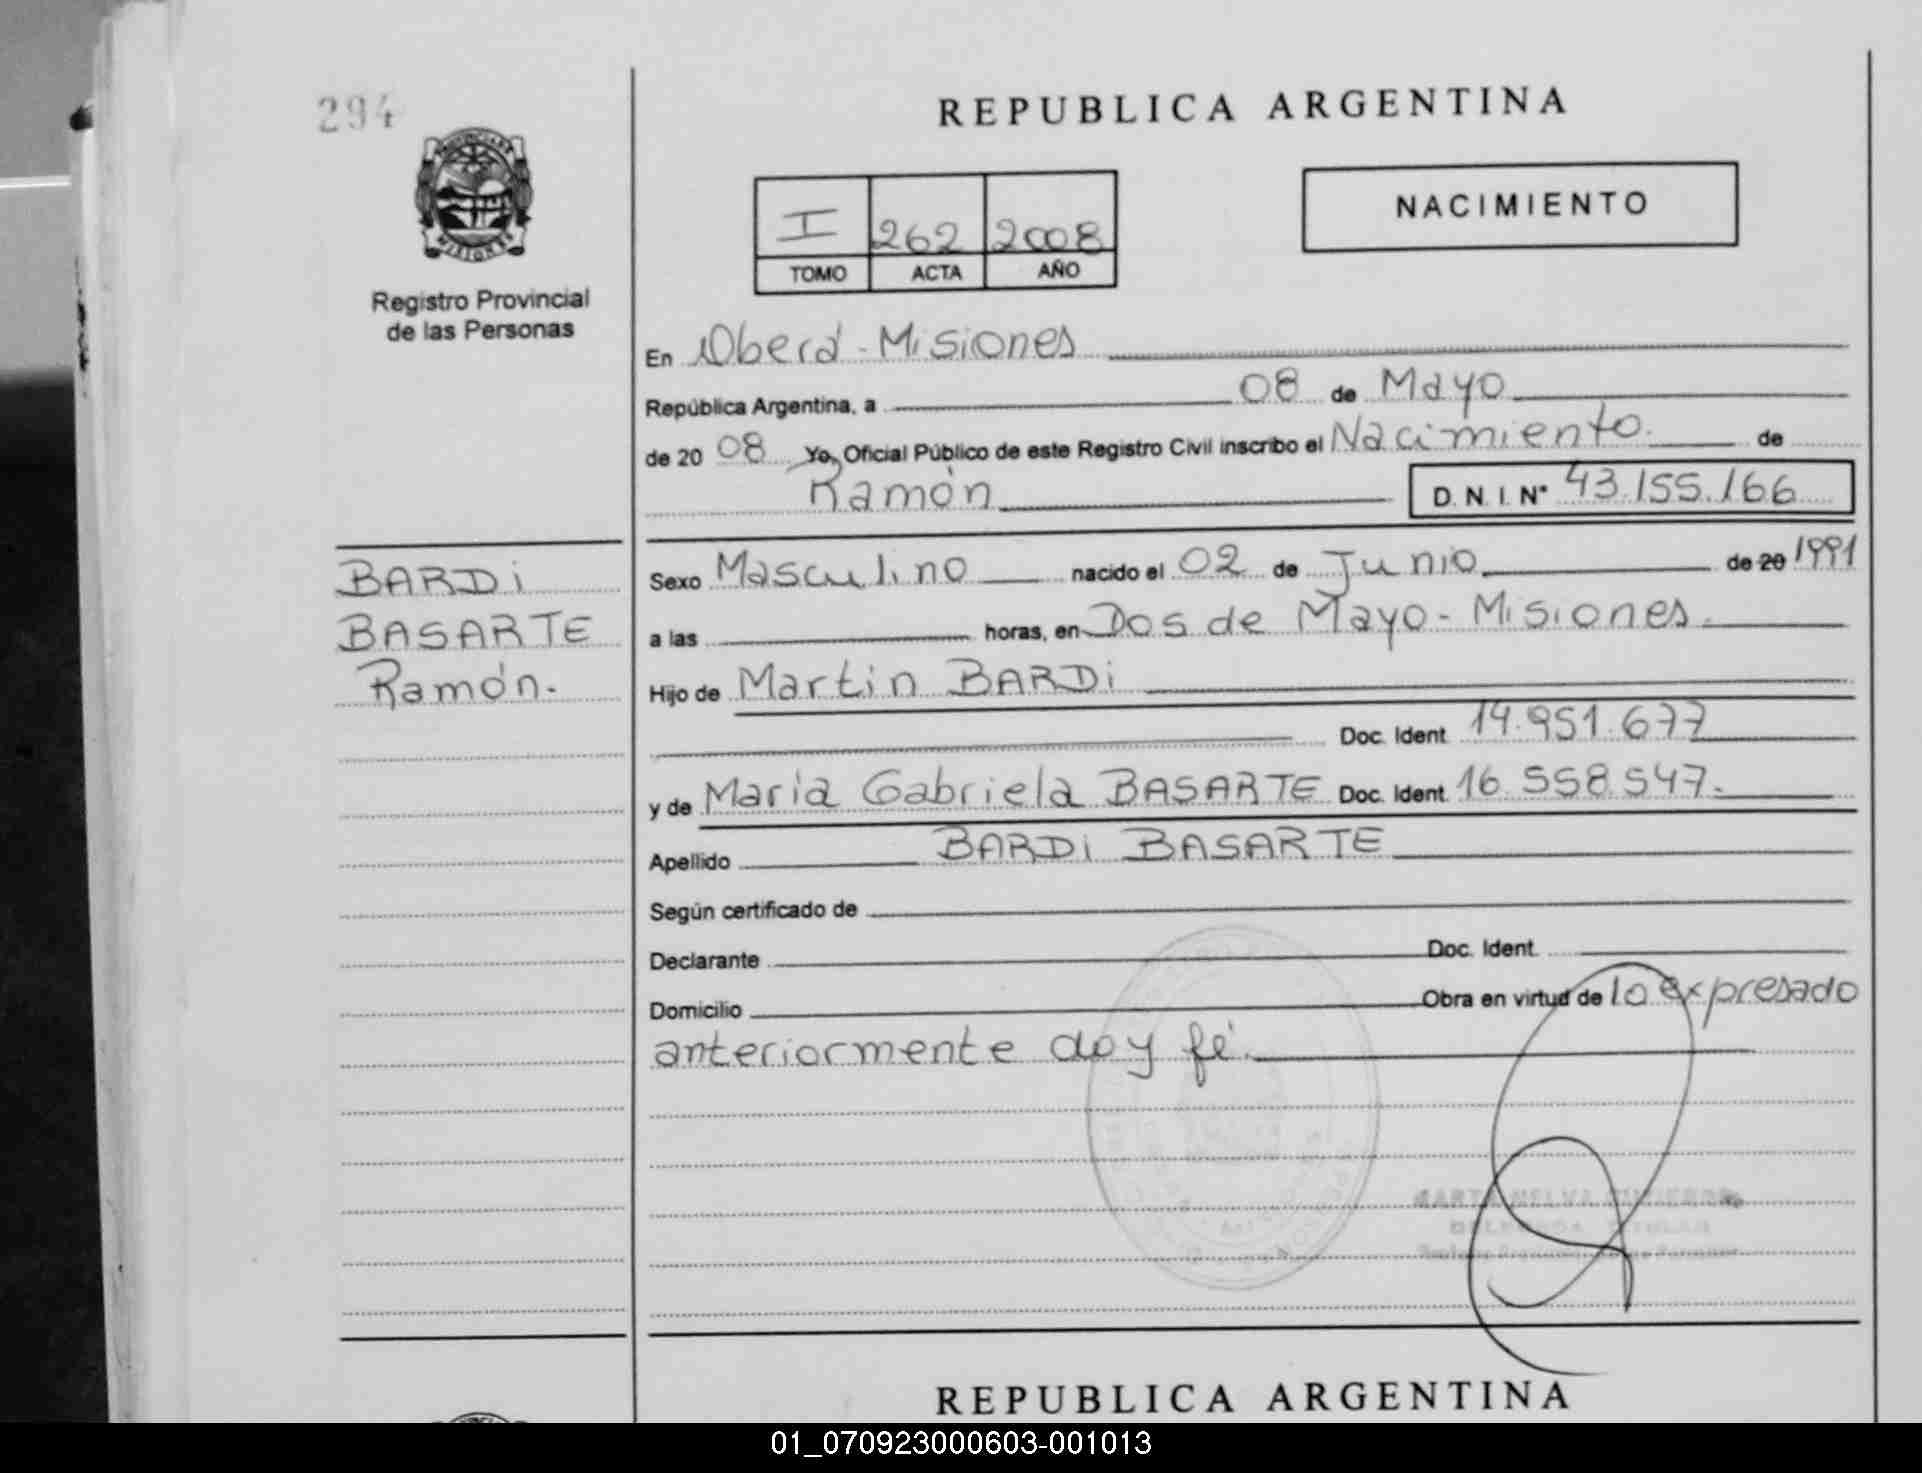 294
REPUBLICA ARGENTINA
I 262 2008
TOMO ACTA AÑO
NACIMIENTO
MISIONES
Registro Provincial
de las Personas
En Oberá - Misiones
República Argentina, a 08 de Mayo
de 20 08 Yo, Oficial Público de este Registro Civil inscribo el Nacimiento de
Ramón D. N. I. N° 43.155.166
BARDi
BASARTE
Ramón.
Sexo Masculino nacido el 02 de Junio de 20 1991
a las horas, en Dos de Mayo - Misiones.
Hijo de Martin BARDi
Doc. Ident. 14.951.677
y de Maria Gabriela BASARTE Doc. Ident. 16.558.547.
Apellido BARDi BASARTE
Según certificado de
Declarante Doc. Ident.
Domicilio Obra en virtud de lo expresado
anteriormente doy fé.
REPUBLICA ARGENTINA
01_070923000603-001013